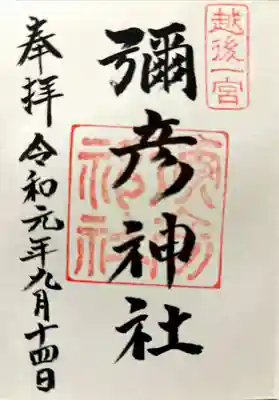 越後一宮
彌彦神社
奉拝
令和元年九月十四日